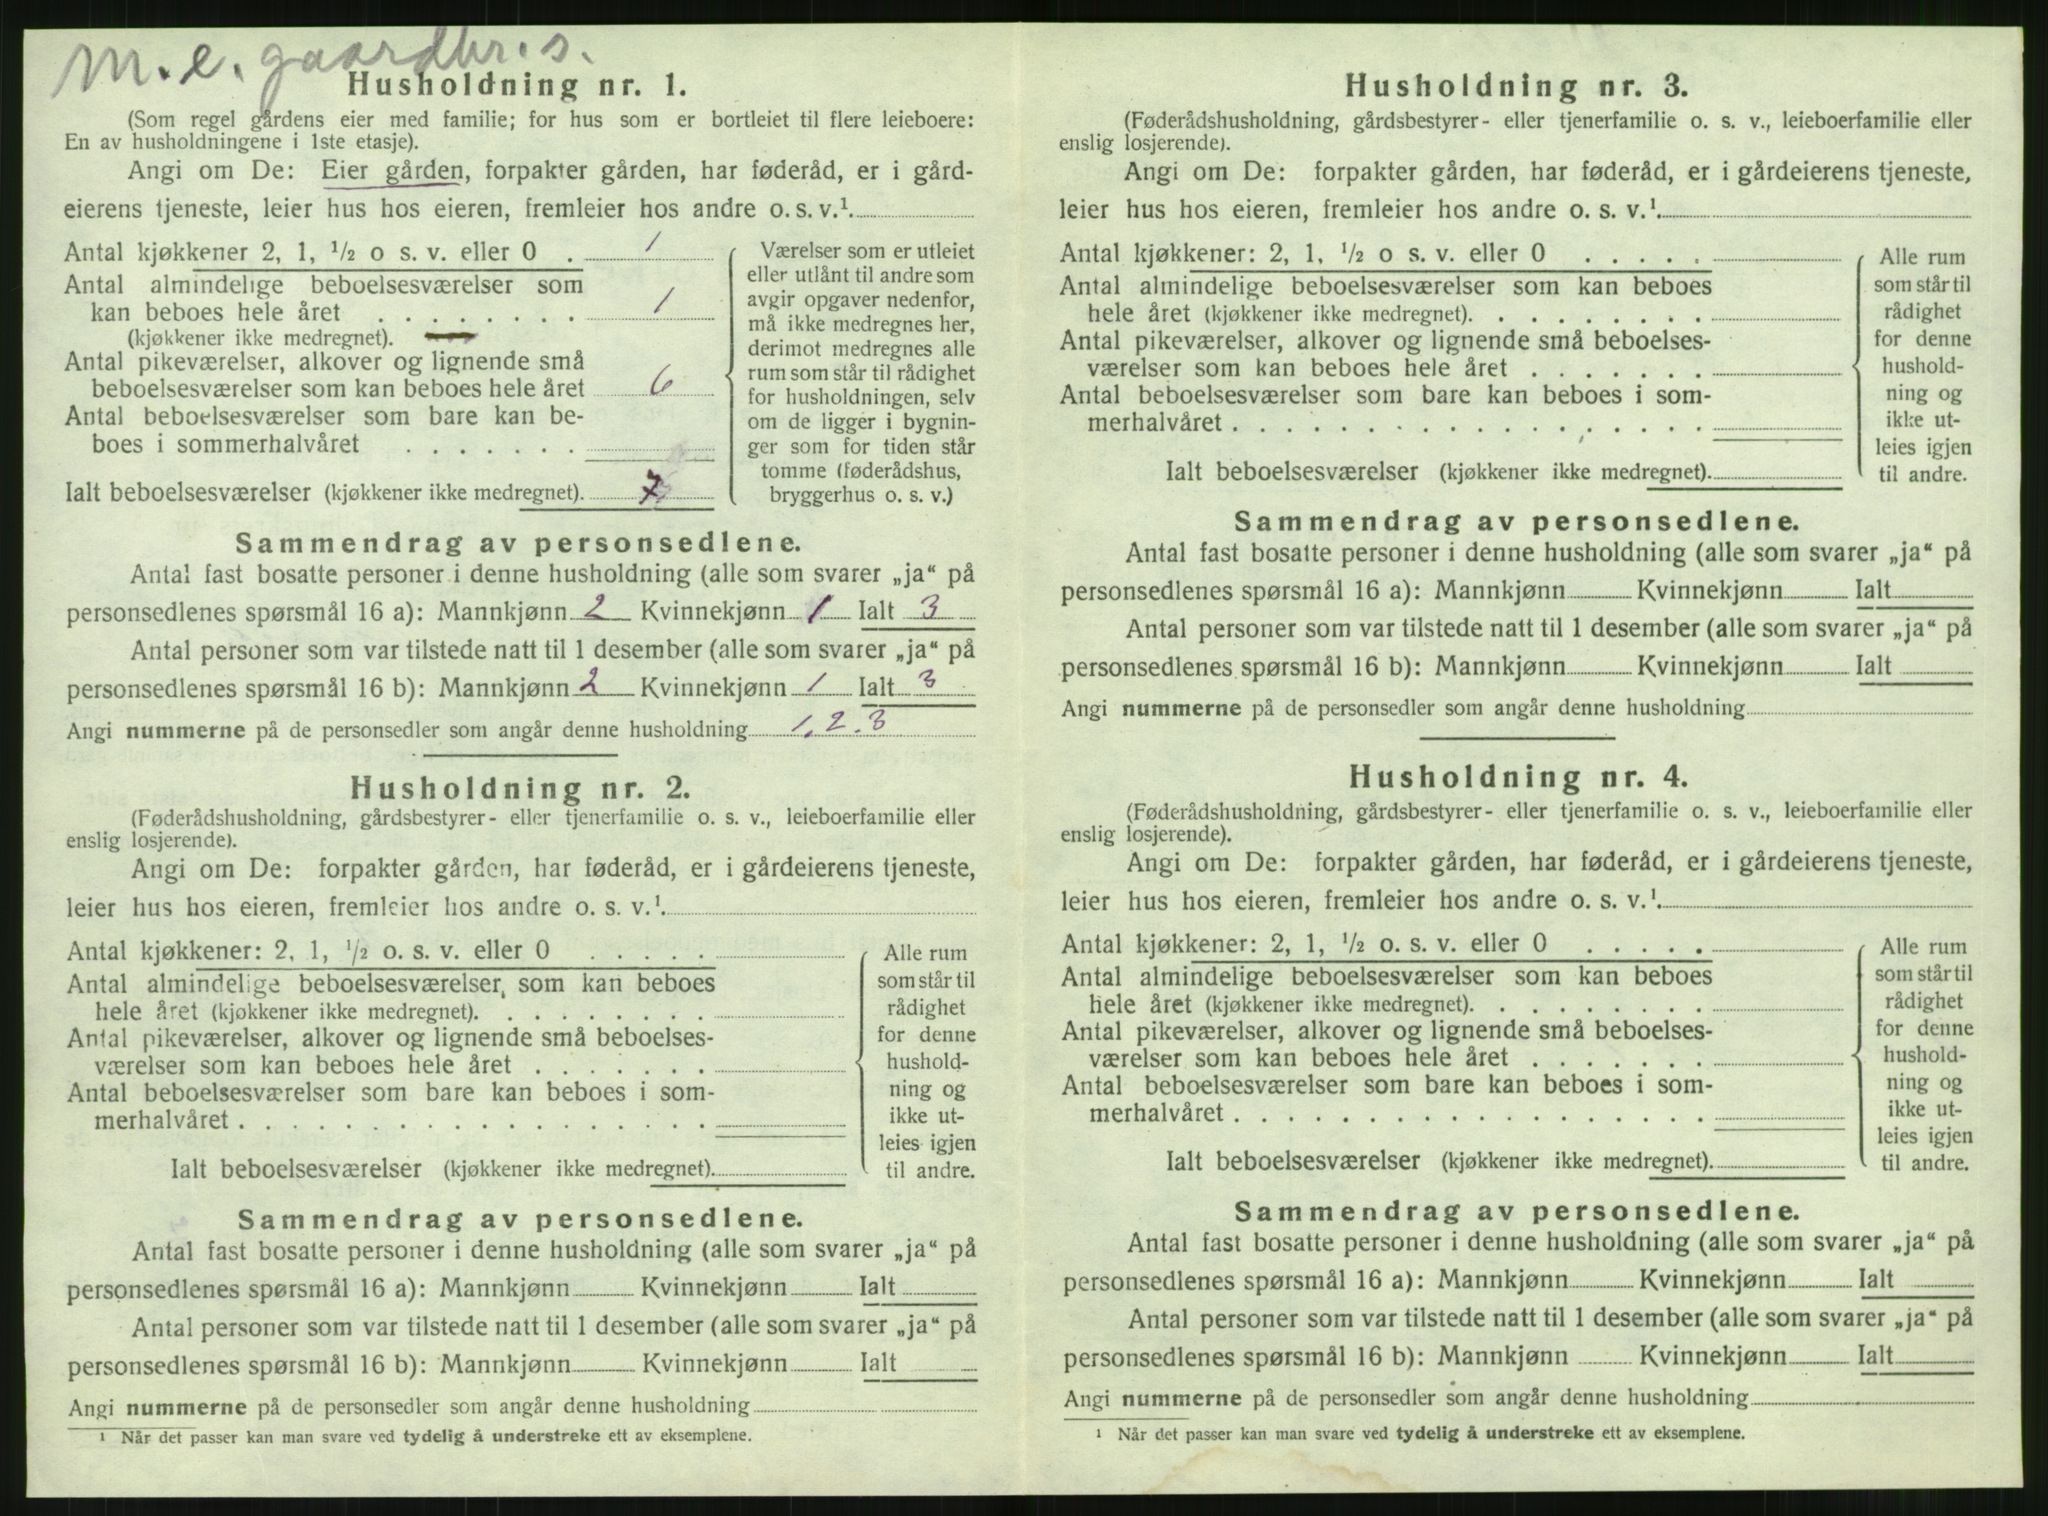 m.e. gaardbr.s.
Husholdning nr. 1.
(Som regel gårdens eier med familie; for hus som er bortleiet til flere leieboere:
En av husholdningene i 1ste etasje).
Angi om De: Eier gården, forpakter gården, har føderåd, er i gård-
eierens tjeneste, leier hus hos eieren, fremleier hos andre o. s. v.¹.
Antal kjøkkener 2, 1, ½ o s. v. eller 0 . 1
Antal almindelige beboelsesværelser som
kan beboes hele året . . . . . . . . 1
(kjøkkener ikke medregnet).
Antal pikeværelser, alkover og lignende små
beboelsesværelser som kan beboes hele året 6
Antal beboelsesværelser som bare kan be-
boes i sommerhalvåret . . . . . . .
Ialt beboelsesværelser (kjøkkener ikke medregnet). 7
Værelser som er utleiet
eller utlånt til andre som
avgir opgaver nedenfor,
må ikke medregnes her,
derimot medregnes alle
rum som står til rådighet
for husholdningen, selv
om de ligger i bygnin-
ger som for tiden står
tomme (føderådshus,
bryggerhus o. s. v.)
Sammendrag av personsedlene.
Antal fast bosatte personer i denne husholdning (alle som svarer „ja“ på
personsedlenes spørsmål 16 a): Mannkjønn 2 Kvinnekjønn 1 Ialt 3
Antal personer som var tilstede natt til 1 desember (alle som svarer „ja“ på
personsedlenes spørsmål 16 b): Mannkjønn 2 Kvinnekjønn 1 Ialt 3
Angi nummerne på de personsedler som angår denne husholdning 1. 2. 3
Husholdning nr. 2.
(Føderådshusholdning, gårdsbestyrer- eller tjenerfamilie o. s. v., leieboerfamilie eller
enslig losjerende).
Angi om De: forpakter gården, har føderåd, er i gårdeierens tjeneste,
leier hus hos eieren, fremleier hos andre o. s. v.¹.
Antal kjøkkener: 2, 1, ½ o. s. v. eller 0 . . . . .
Antal almindelige beboelsesværelser, som kan beboes
hele året (kjøkkener ikke medregnet). . . . . . . . .
Antal pikeværelser, alkover og lignende små beboelses-
værelser som kan beboes hele året . . . . . . .
Antal beboelsesværelser som bare kan beboes i som-
merhalvåret . . . . . . . . . . . . . . . . . .
Ialt beboelsesværelser (kjøkkener ikke medregnet).
Alle rum
som står til
rådighet
for denne
hushold-
ning og
ikke ut-
leies igjen
til andre.
Sammendrag av personsedlene.
Antal fast bosatte personer i denne husholdning (alle som svarer „ja“ på
personsedlenes spørsmål 16 a): Mannkjønn Kvinnekjønn Ialt
Antal personer som var tilstede natt til 1 desember (alle som svarer „ja“ på
personsedlenes spørsmål 16 b): Mannkjønn Kvinnekjønn Ialt
Angi nummerne på de personsedler som angår denne husholdning
¹ Når det passer kan man svare ved tydelig å understreke ett av eksemplene.
Husholdning nr. 3.
(Føderådshusholdning, gårdsbestyrer- eller tjenerfamilie o. s. v., leieboerfamilie eller
enslig losjerende).
Angi om De: forpakter gården, har føderåd, er i gårdeierens tjeneste,
leier hus hos eieren, fremleier hos andre o. s. v.¹.
Antal kjøkkener: 2, 1, ½ o s. v. eller 0 . . . . .
Antal almindelige beboelsesværelser som kan beboes
hele året (kjøkkener ikke medregnet). . . . . . . . .
Antal pikeværelser, alkover og lignende små beboelses-
værelser som kan beboes hele året . . . . . . .
Antal beboelsesværelser som bare kan beboes i som-
merhalvåret . . . . . . . . . . . . . . . . . .
Ialt beboelsesværelser (kjøkkener ikke medregnet).
Alle rum
som står til
rådighet
for denne
hushold-
ning og
ikke ut-
leies igjen
til andre.
Sammendrag av personsedlene.
Antal fast bosatte personer i denne husholdning (alle som svarer „ja“ på
personsedlenes spørsmål 16 a): Mannkjønn Kvinnekjønn Ialt
Antal personer som var tilstede natt til 1 desember (alle som svarer „ja“ på
personsedlenes spørsmål 16 b): Mannkjønn Kvinnekjønn Ialt
Angi nummerne på de personsedler som angår denne husholdning
Husholdning nr. 4.
(Føderådshusholdning, gårdsbestyrer- eller tjenerfamilie o. s. v., leieboerfamilie eller
enslig losjerende).
Angi om De: forpakter gården, har føderåd, er i gårdeierens tjeneste,
leier hus hos eieren, fremleier hos andre o. s. v.¹.
Antal kjøkkener: 2, 1, ½ o. s. v. eller 0 . . . . .
Antal almindelige beboelsesværelser som kan beboes
hele året (kjøkkener ikke medregnet). . . . . . . . .
Antal pikeværelser, alkover og lignende små beboelses-
værelser som kan beboes hele året . . . . . . .
Antal beboelsesværelser som bare kan beboes i som-
merhalvåret . . . . . . . . . . . . . . . . . .
Ialt beboelsesværelser (kjøkkener ikke medregnet).
Alle rum
som står til
rådighet
for denne
hushold-
ning og
ikke ut-
leies igjen
til andre.
Sammendrag av personsedlene.
Antal fast bosatte personer i denne husholdning (alle som svarer „ja“ på
personsedlenes spørsmål 16 a): Mannkjønn Kvinnekjønn Ialt
Antal personer som var tilstede natt til 1 desember (alle som svarer „ja“ på
personsedlenes spørsmål 16 b): Mannkjønn Kvinnekjønn Ialt
Angi nummerne på de personsedler som angår denne husholdning
¹ Når det passer kan man svare ved tydelig å understreke ett av eksemplene.